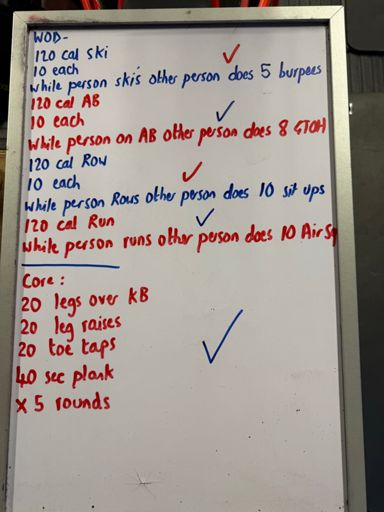 WOD-
120 cal Ski
10 each
while person skis other person does 5 burpees
120 cal AB
10 each
while person on AB other person does 8 GTOH
120 cal Row
10 each
while person Rows other person does 10 sit ups
120 cal Run
while person runs other person does 10 Air Sq
Core:
20 legs over KB
20 leg raises
20 toe taps
40 sec plank
x 5 rounds